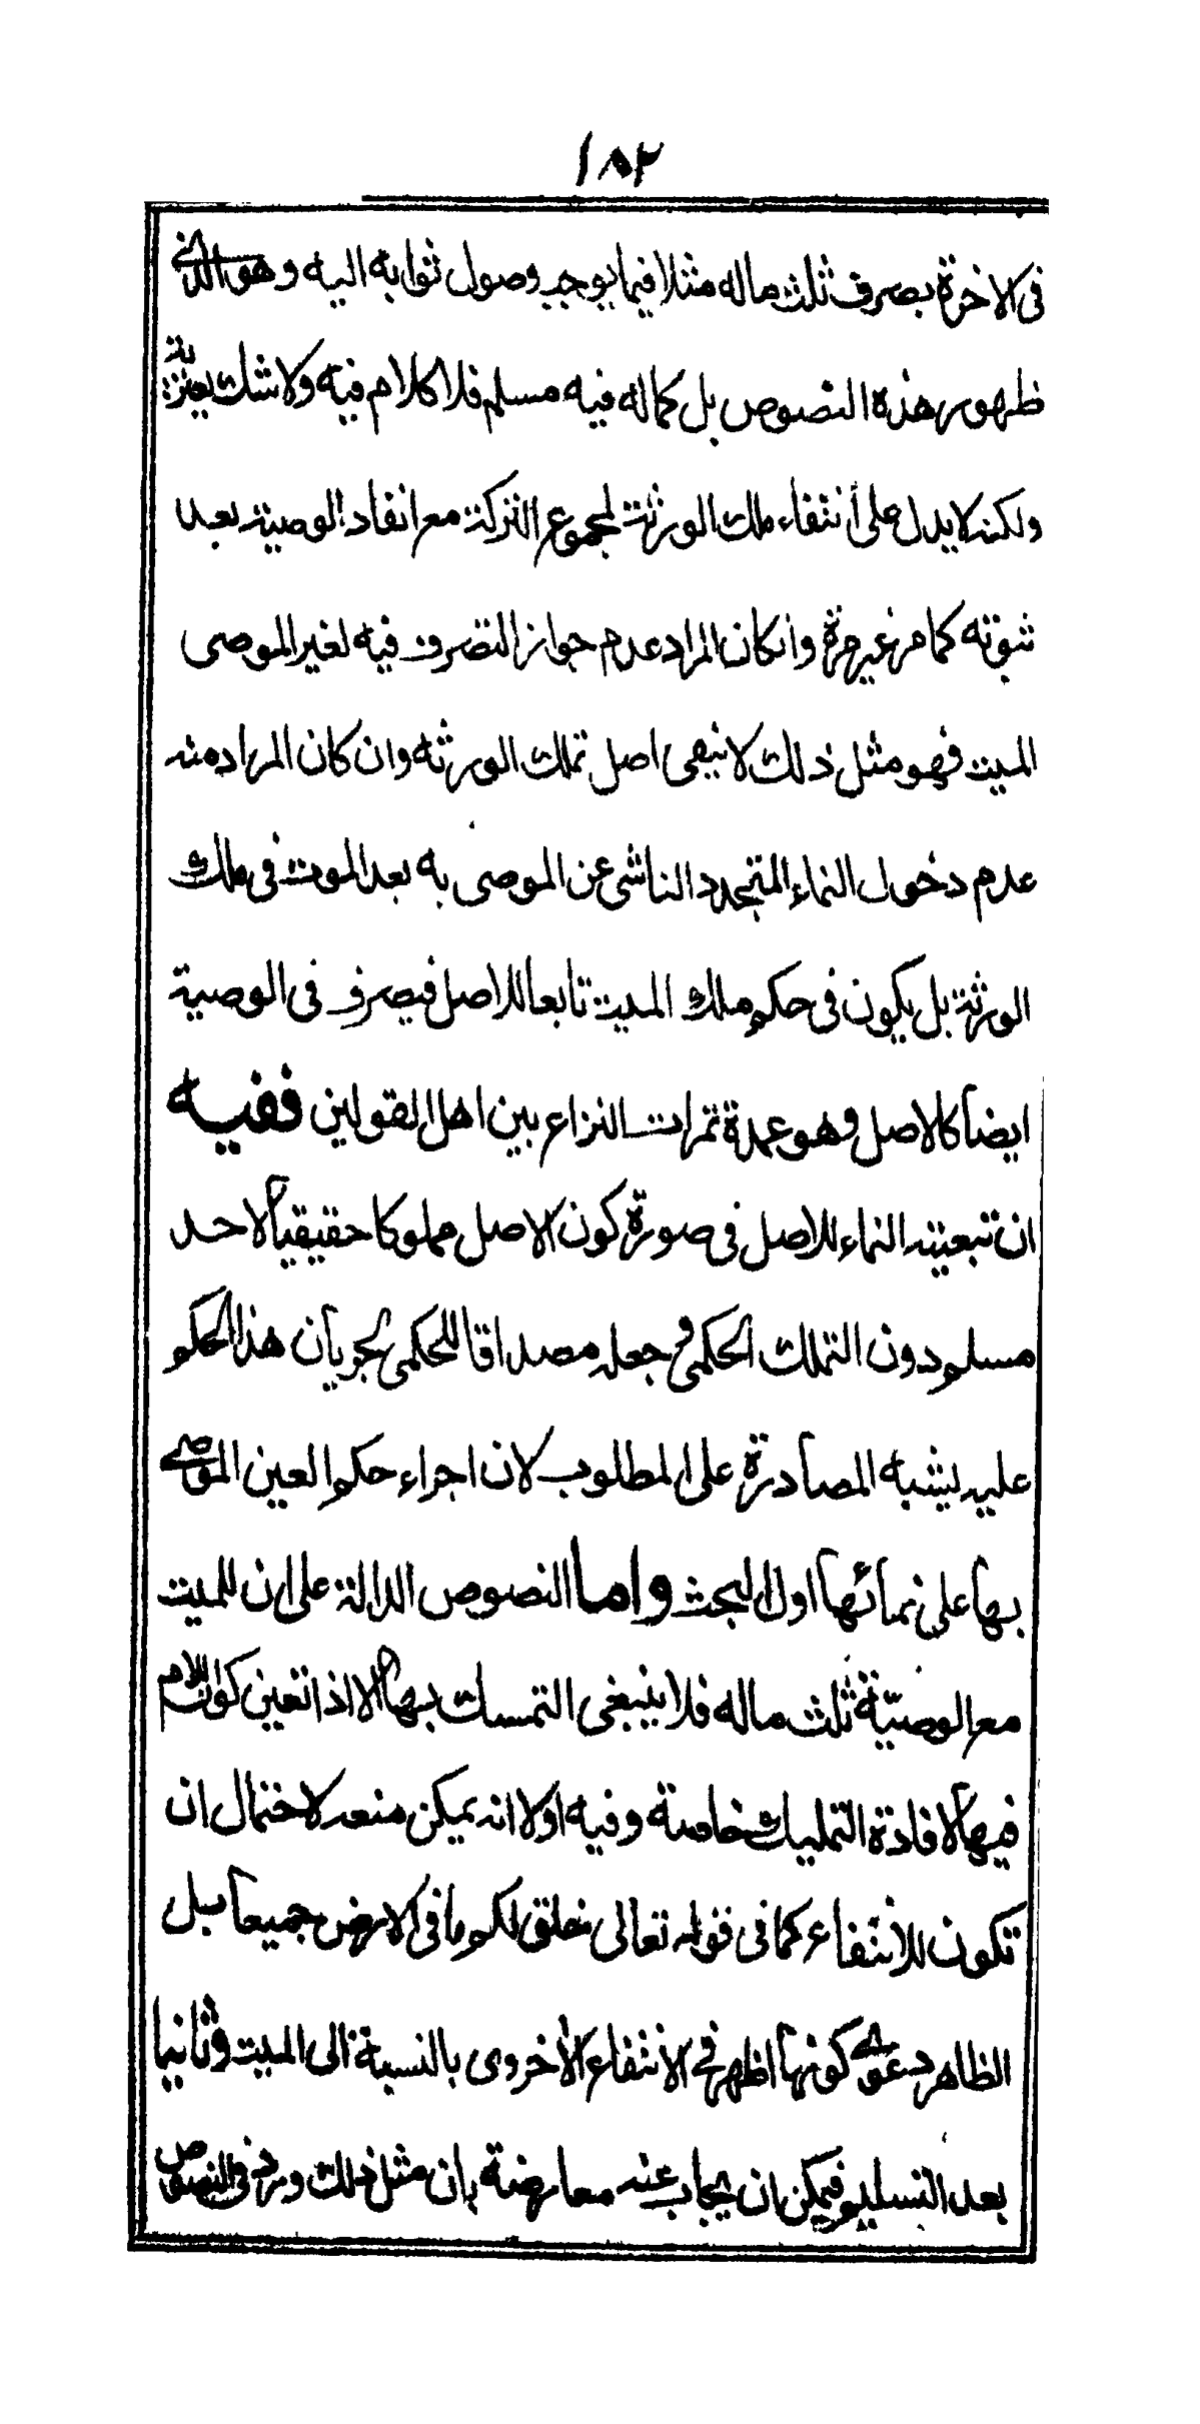 ١٨٢
فى الاخرة بصرف ثلث ماله مثلا فيما يوجب وصول ثوابه اليه وهو الذى
ظهور هذه النصوص بل كماله فيه مسلم فلا كلام فيه ولا شك يعتريه
ولكنه لا يدل على أنتفاء ملك الورثة لمجموع التركة مع انفاد الوصية بعد
ثبوته كما مر غير مرة وانكان المراد عدم جواز التصرف فيه لغير الموصى
الميت فهو مثل ذلك لا ينفى اصل تملك الورثه وان كان المراد منه
عدم دخول النماء المتجدد الناشى عن الموصى به بعد الموت فى ملك
الورثة بل يكون فى حكم ملك الميت تابعا للاصل فيصرف فى الوصية
ايضا كالاصل وهو عمدة ثمرات النزاع بين اهل القولين ففيه
ان تبعيته النماء للاصل فى صورة كون الاصل مملوكا حقيقيا لاحد
مسلم دون التملك الحكمى و جعله مصداقا للحكمى لجريان هذا الحكم
عليه يشبه المصادرة على المطلوب لان اجراء حكم العين الموصى
بها على نمائها اول البحث واما النصوص الدالة على ان للميت
مع الوصيّة ثلث ماله فلا ينبغى التمسك بها الا اذا تعين كون اللام
فيها لافادة التمليك خاصة وفيه اولا انه يمكن منعه لاحتمال ان
تكون للانتفاع كما فى قوله تعالى خلق لكم ما فى الارض جميعا بل
الظاهر دعوى كونها اظهر فى الانتفاع الأخروى بالنسبة الى الميت وثانيا
بعد التسليم فيمكن ان يجاب عنه معارضة بان مثل ذلك ورد فى النصوص